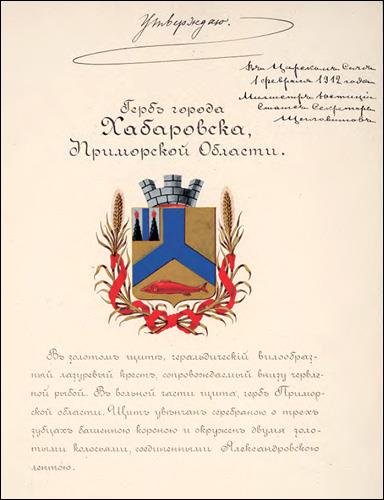 Утверждаю.
Въ Царскомъ Селѣ
1 февраля 1912 года
Министръ Юстиціи
Статсъ-Секретарь
Щегловитовъ
Гербъ города
Хабаровска,
Приморской Области.
Въ золотомъ щитѣ, геральдическій вилообраз-
ный лазуревый крестъ, сопровождаемый внизу червле-
ной рыбой. Въ вольной части щита, гербъ Примор-
ской области. Щитъ увѣнчанъ серебряною о трехъ
зубцахъ башенною короною и окруженъ двумя золо-
тыми колосьями, соединенными Александровскою
лентою.